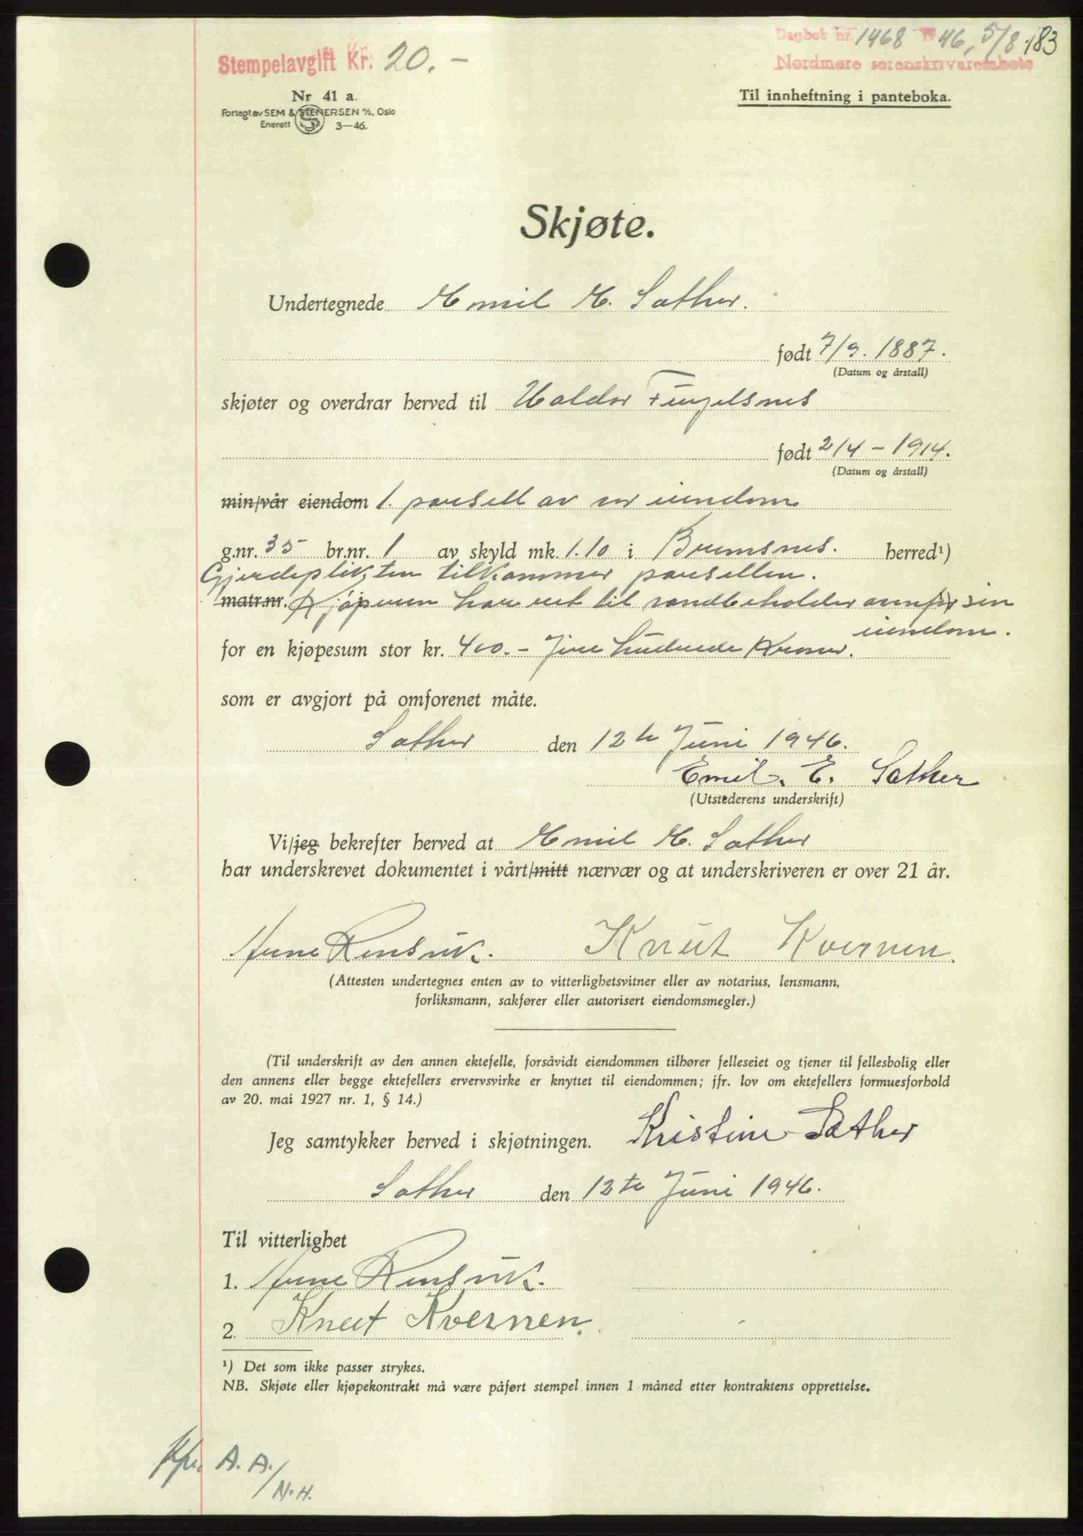 Stempelavgift Kr. 20.-
Dagbok nr. 1468 19 46, 5/8
183
Nordmøre sorenskriverembete
Nr 41 a.
Forlagt av SEM & STENERSEN A/S, Oslo
Enerett 3—46.
Til innheftning i panteboka.
Skjøte.
Undertegnede Emil E. Sæther.
født 7/9. 1887.
(Datum og årstall)
skjøter og overdrar herved til Haldor
født 2/4 - 1914.
(Datum og årstall)
min/vår eiendom 1. parsell av vor eiendom
g.nr. 35 br.nr. 1 av skyld mk. 1.10 i Bremsnes. herred¹)
Gjerdeplikten tilkommer parsellen.
matr.nr. Kjøperen har ret til sin
eiendom.
for en kjøpesum stor kr. 400.- Fire hundrede Kroner.
som er avgjort på omforenet måte.
Sæther den 12te Juni 1946.
Emil. E. Sæther
(Utstederens underskrift)
Vi/jeg bekrefter herved at Emil E. Sæther
har underskrevet dokumentet i vårt/mitt nærvær og at underskriveren er over 21 år.
Knut Kvernen.
(Attesten undertegnes enten av to vitterlighetsvitner eller av notarius, lensmann,
forliksmann, sakfører eller autorisert eiendomsmegler.)
(Til underskrift av den annen ektefelle, forsåvidt eiendommen tilhører felleseiet og tjener til fellesbolig eller
den annens eller begge ektefellers ervervsvirke er knyttet til eiendommen; jfr. lov om ektefellers formuesforhold
av 20. mai 1927 nr. 1, § 14.)
Jeg samtykker herved i skjøtningen. Kristine Sæther
Sæther den 12te Juni 1946.
Til vitterlighet
1.
2. Knut Kvernen.
¹) Det som ikke passer strykes.
NB. Skjøte eller kjøpekontrakt må være påført stempel innen 1 måned etter kontraktens opprettelse.
A. A./
N.H.